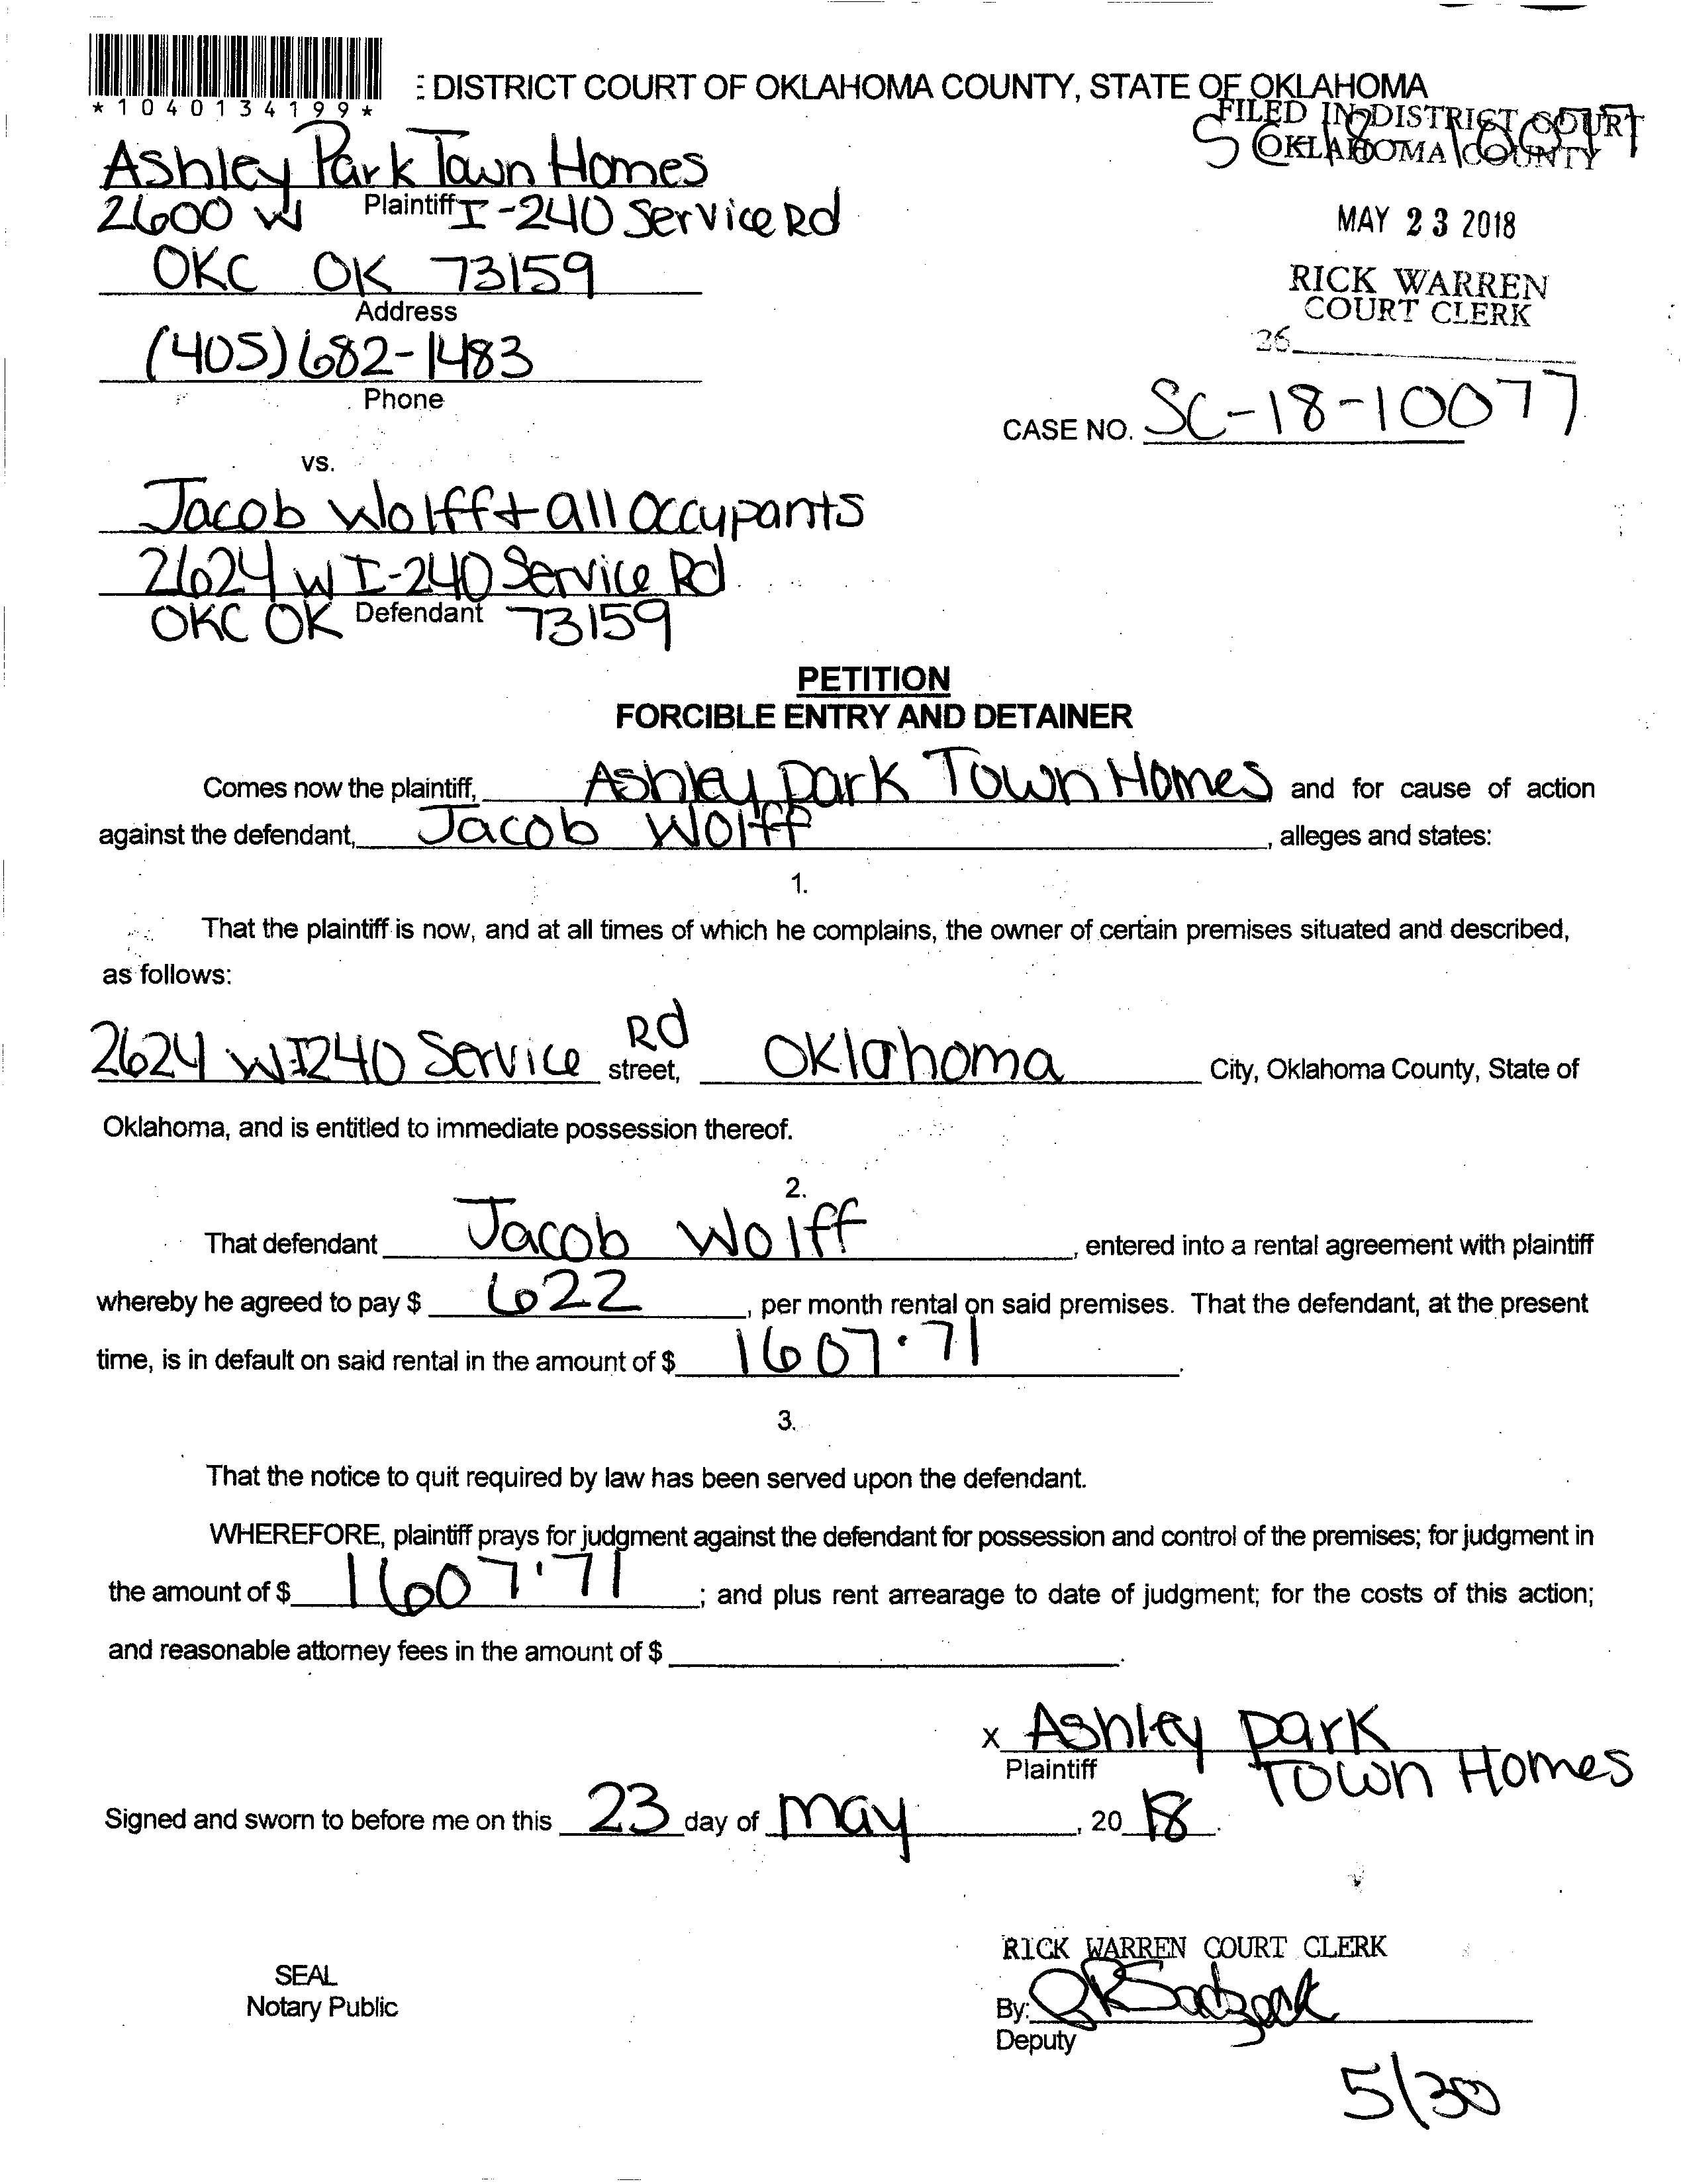 *1040134199*
: DISTRICT COURT OF OKLAHOMA COUNTY, STATE OF OKLAHOMA
FILED IN DISTRICT COURT
OKLAHOMA COUNTY
SC 18 10077
Ashley Park Town Homes
2600 W Plaintiff I-240 Service Rd
MAY 23 2018
OKC OK 73159
Address
RICK WARREN
COURT CLERK
(405) 682-1483
Phone
36
CASE NO. SC-18-10077
vs.
Jacob Wolff + all occupants
2624 W I-240 Service Rd
OKC OK Defendant 73159
PETITION
FORCIBLE ENTRY AND DETAINER
Comes now the plaintiff, Ashley Park Town Homes and for cause of action
against the defendant, Jacob Wolff, alleges and states:
1.
That the plaintiff is now, and at all times of which he complains, the owner of certain premises situated and described,
as follows:
2624 W I240 Service Rd street, Oklahoma City, Oklahoma County, State of
Oklahoma, and is entitled to immediate possession thereof.
2.
That defendant Jacob Wolff, entered into a rental agreement with plaintiff
whereby he agreed to pay $ 622, per month rental on said premises. That the defendant, at the present
time, is in default on said rental in the amount of $ 1607.71.
3.
That the notice to quit required by law has been served upon the defendant.
WHEREFORE, plaintiff prays for judgment against the defendant for possession and control of the premises; for judgment in
the amount of $ 1607.71; and plus rent arrearage to date of judgment; for the costs of this action;
and reasonable attorney fees in the amount of $ .
x Ashley Park
Plaintiff Town Homes
Signed and sworn to before me on this 23 day of May, 20 18.
RICK WARREN COURT CLERK
SEAL
Notary Public
By:
Deputy
5/30